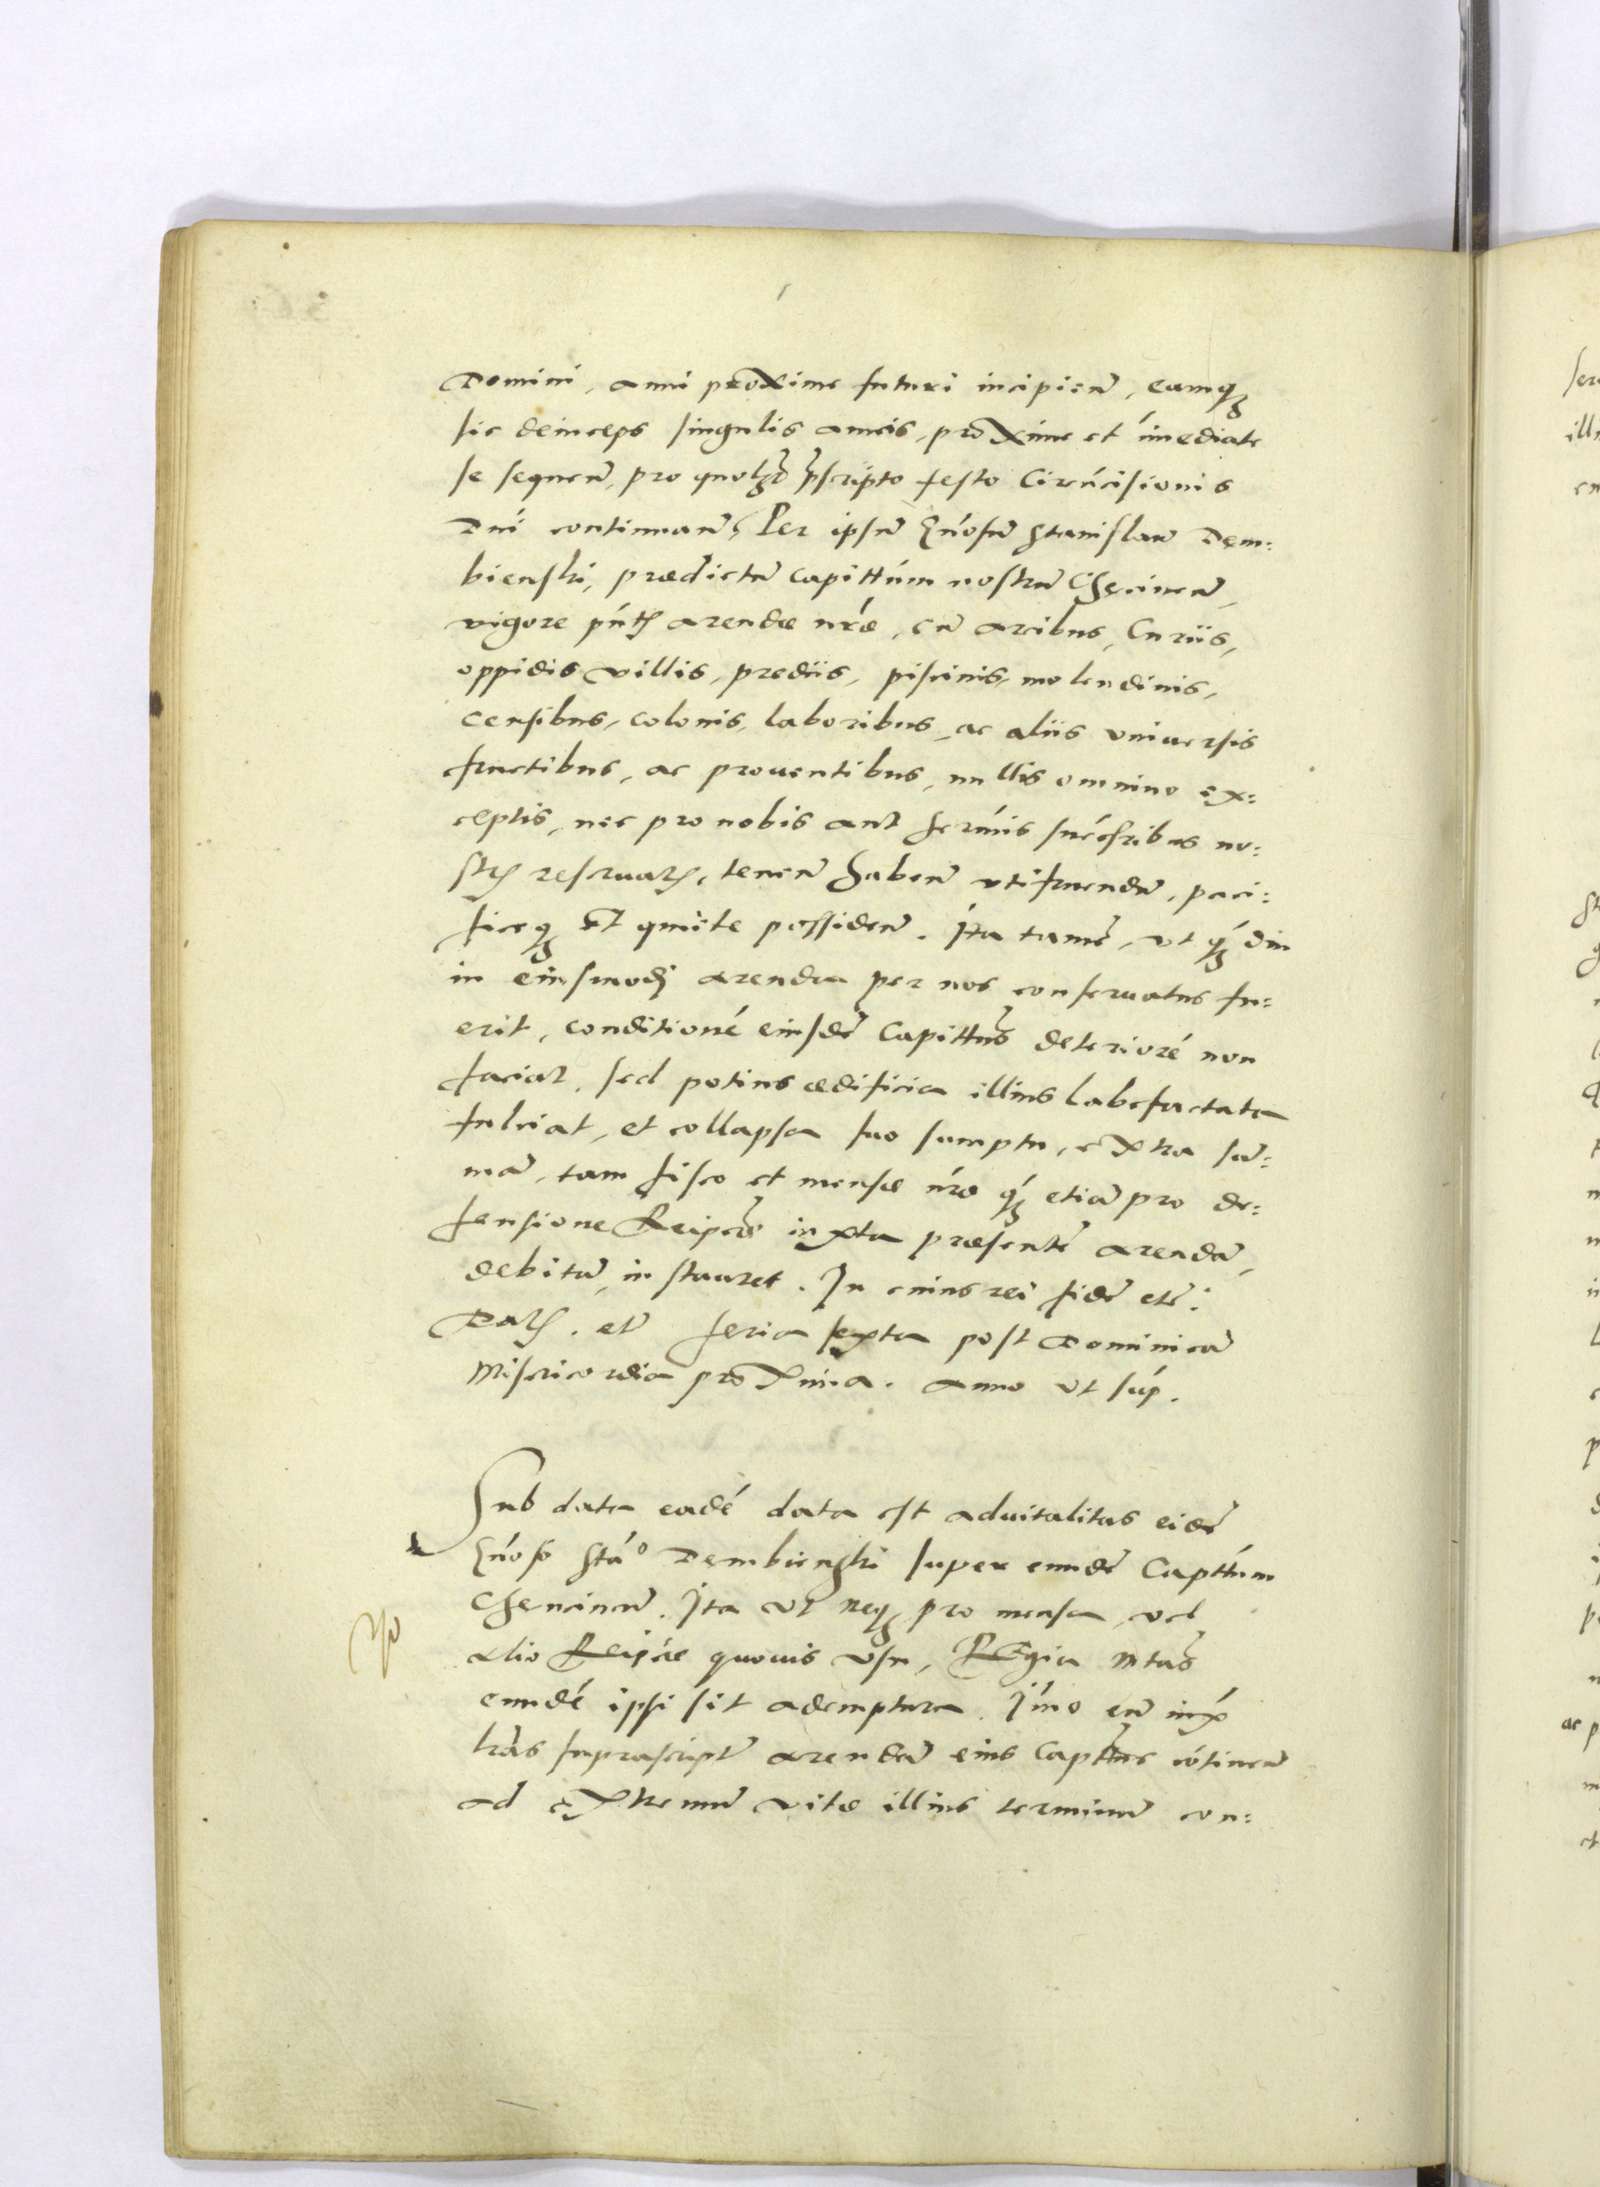 Domini, anni proxime futuri incipien̄, eamq́
sic deinceps singulis annis, proxime et ímediate
se sequen̄, pro quolꝫt p̄scripto festo Circu̇cisionis
Dn̄i continuan̄, Per ipsum̄ Gn̄osum̄ Stanislaum̄ Dem:
bienski, praedictum̄ capitt́um nostrum̄ Chęcinen̄,
vigore pn̄tis arendae nr̄ae, cum̄ arcibus, Curiis,
oppidis villis, prediis, piscinis, molendinis,
censibus, colonis, laboribus, ac aliis vniuersis
fructibus, ac prouentibus, nullis omnino ex:
ceptis, nec pro nobis aut ser̄mis succ̄sribus no:
stris reseruatis, tenen̄ haben̄ vtifruendum̄, paci:
ficeq́ et quiete possiden̄. Ita tamē, vt q́ diu
in eiusmodj arenda per nos conseruatus fu:
erit, conditionē eiusdē Capittus̄ deteriorē non
faciat, sed potius aedificia illius labefactata
fulciat, et collapsa suo sumptu, extra sum̄:
mam̄, tam fisco et mensae nr̄ae q́ etiam̄ pro de:
fensione Reipcae̅ iuxta praesentē arendam̄,
debitam̄, instauret. In cuius rei fidē etc̄:
Datis. etc̄ feria sexta post Dominicam̄
Misericordia proxima. anno vt suṕ.
Sub data eadē data est aduitalitas eidē
Gn̄oso Sta̅o Dembienski super eundē Captt́um
Chencinen̄. Ita vt neq́ pro mensa vel
alio Reipc̄ae quouis vsu, Regia Mtas̄
eundē ipsi sit ademptura. Im̄o eum̄ iux̄
lrās suprascriptam̄ arendam̄ eius Captus̄ cōtinen̄
ad extremum̄ vitae illius terminum̄ con: